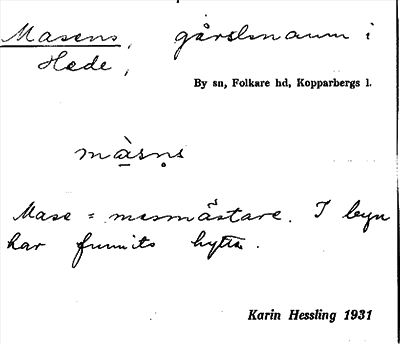 Masens, gårdsnamn i
Hede,
By sn, Folkare hd, Kopparbergs l.
màsṇs
Mase = masmästare. I byn
har funnits hytta.
Karin Hessling 1931